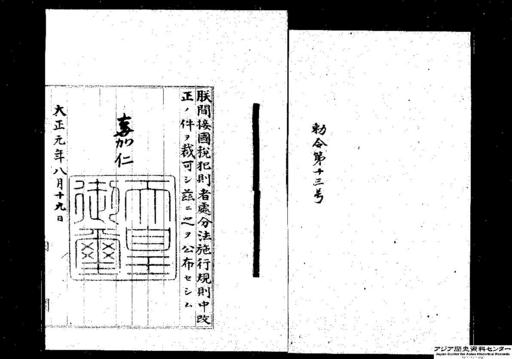 勅令第十三号
朕間接國税犯則者處分法施行規則中改
正ノ件ヲ裁可シ茲ニ之ヲ公布セシム
嘉仁
天皇
御璽
大正元年八月十九日
アジア歴史資料センター
Japan Center for Asian Historical Records